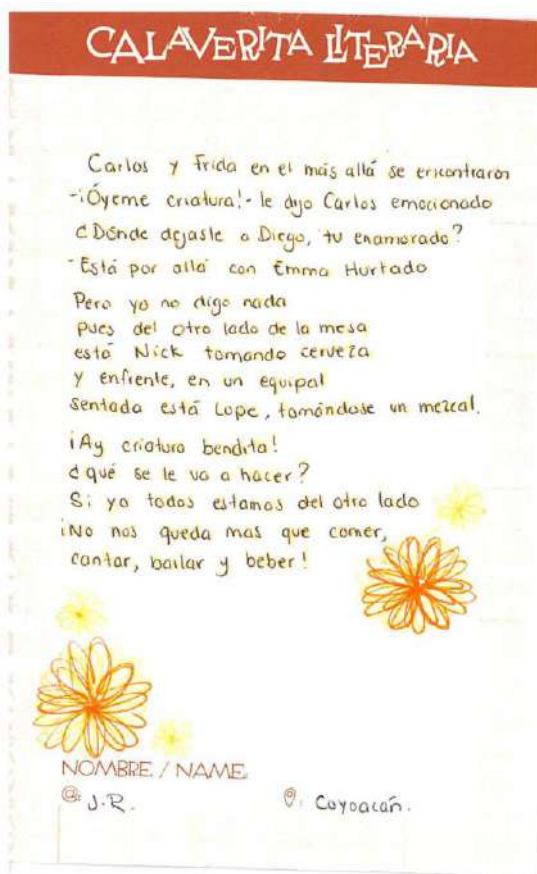 CALAVERITA LITERARIA
Carlos y Frida en el más allá se encontraron
-¡Óyeme criatura!- le dijo Carlos emocionado
¿Dónde dejaste a Diego, tu enamorado?
-Está por allá con Emma Hurtado
Pero yo no digo nada
pues del otro lado de la mesa
está Nick tomando cerveza
y enfrente, en un equipal
sentada está Lupe, tomándose un mezcal.
¡Ay criatura bendita!
¿qué se le va a hacer?
Si ya todos estamos del otro lado
¡No nos queda mas que comer,
cantar, bailar y beber!
NOMBRE / NAME
@: J.R.
: Coyoacán.